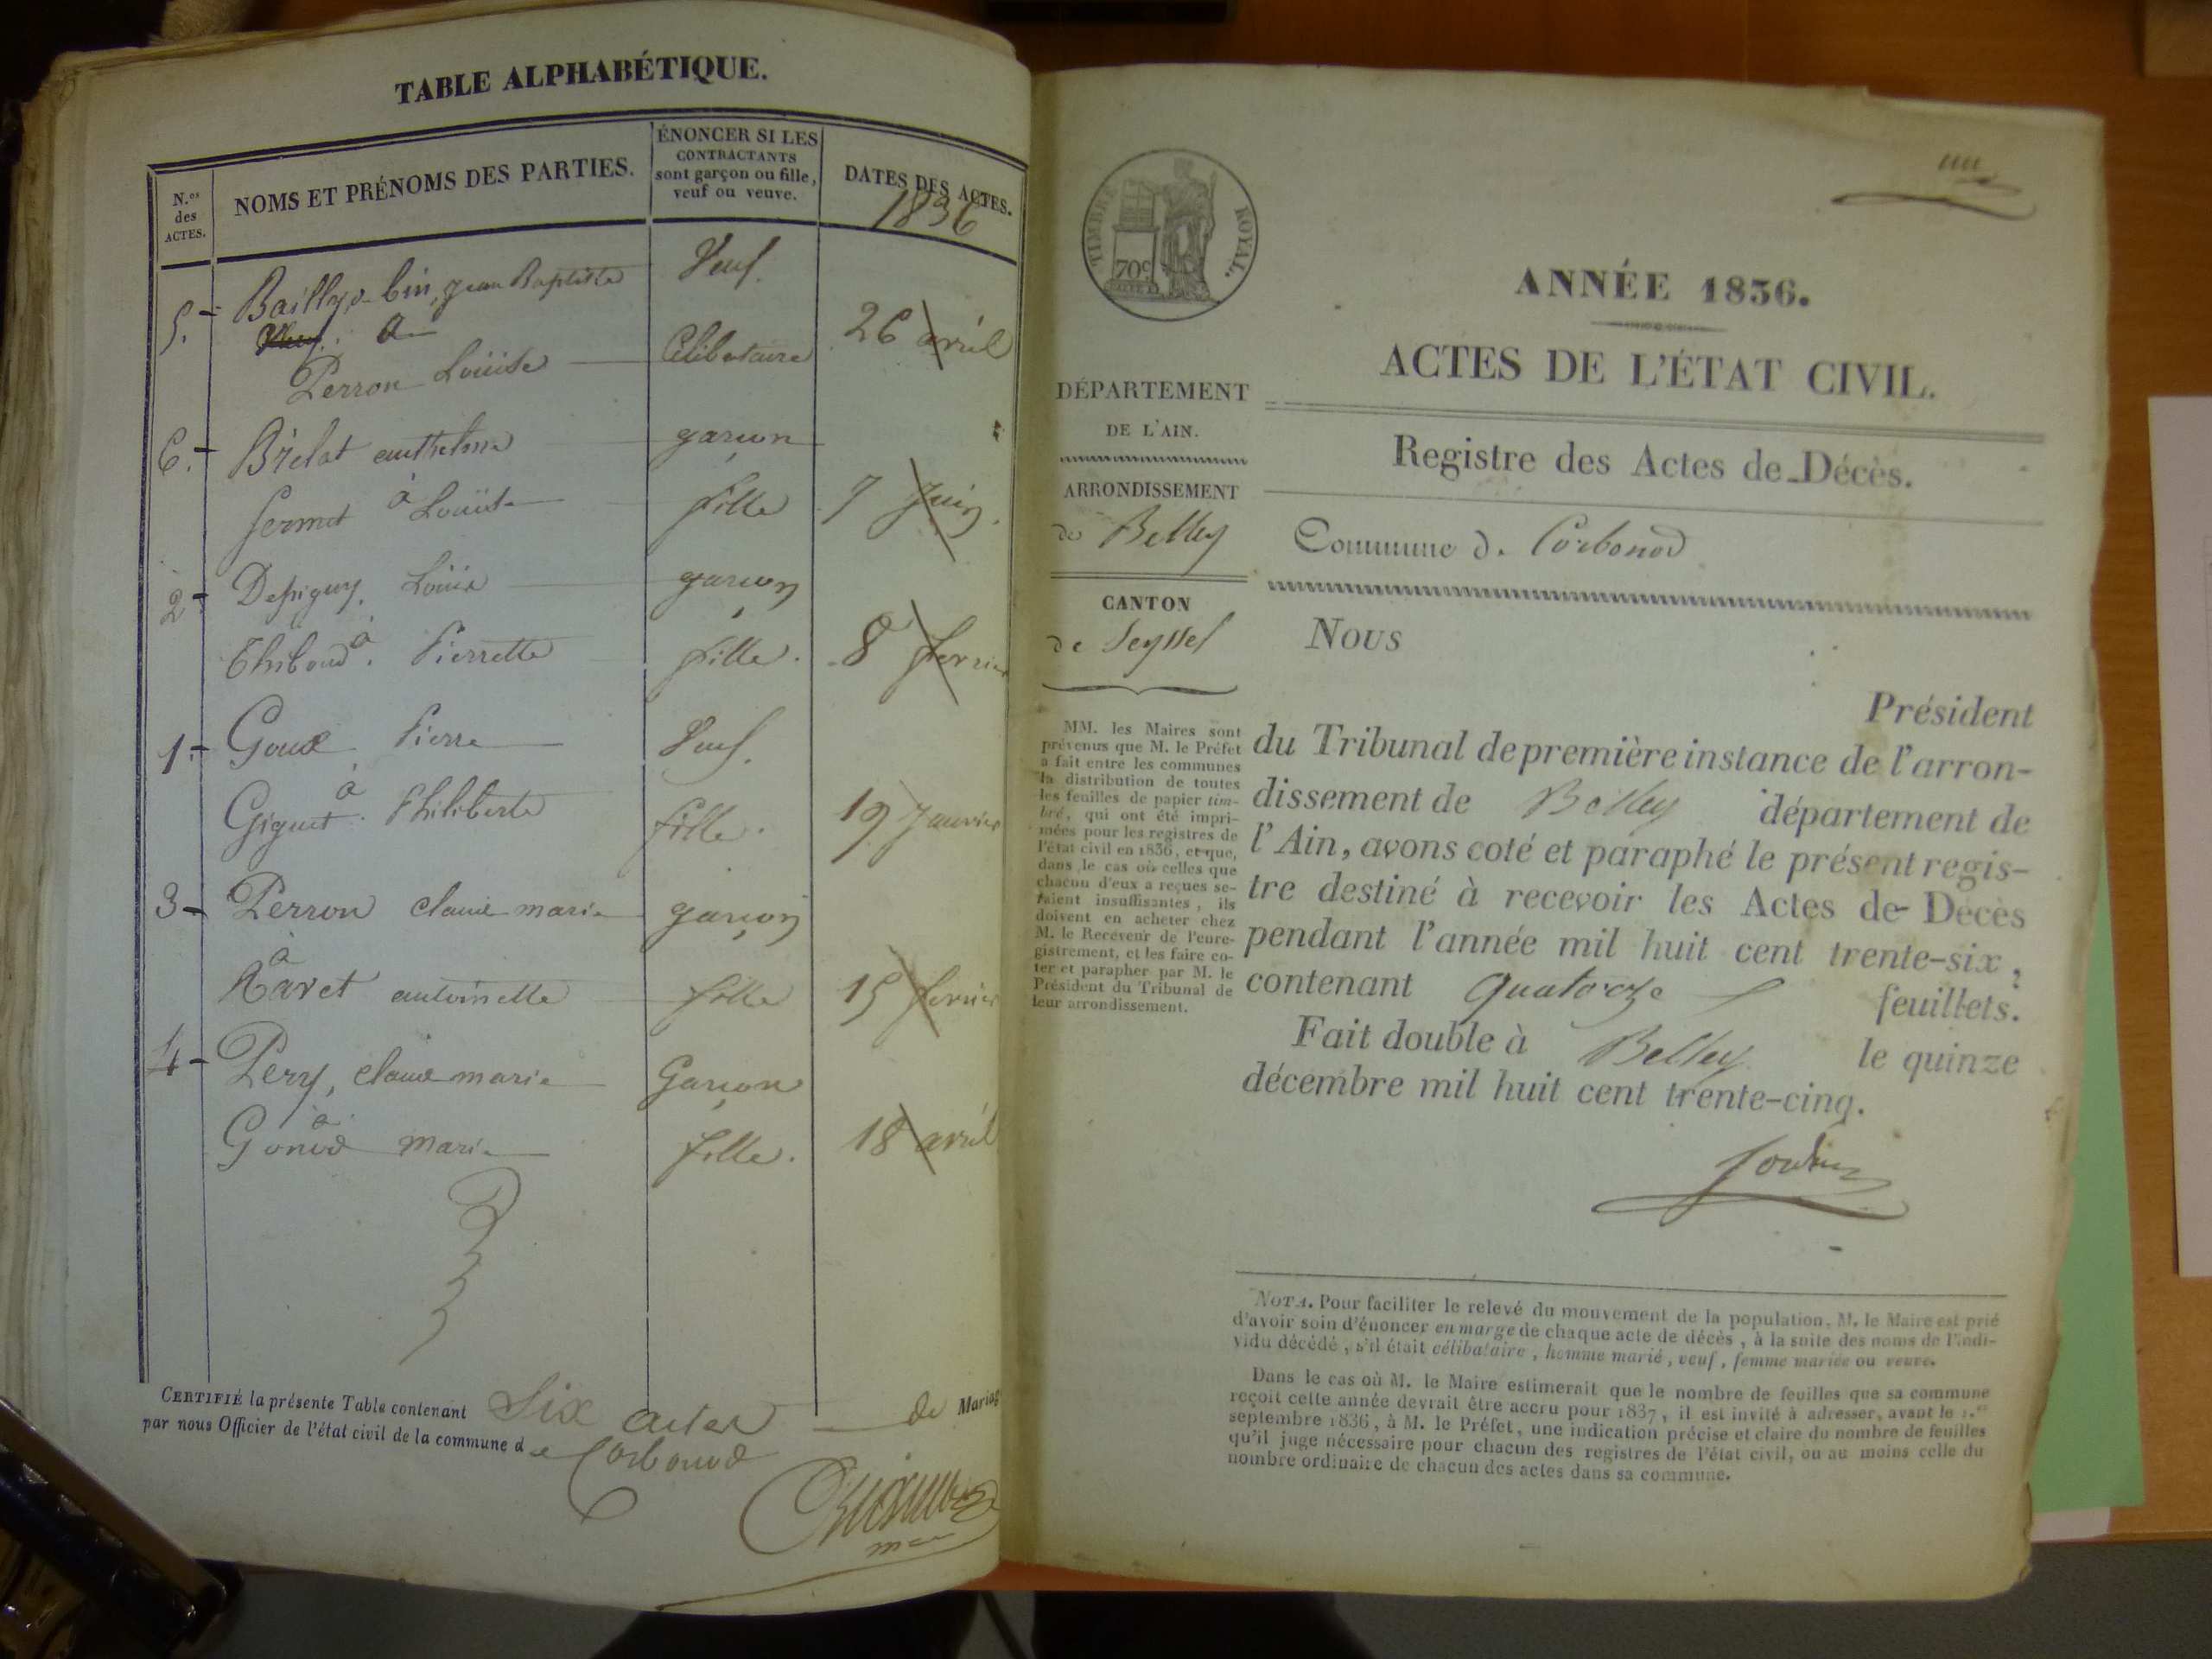 TABLE ALPHABÉTIQUE.
N.os des ACTES.
NOMS ET PRÉNOMS DES PARTIES.
ÉNONCER SI LES
CONTRACTANTS
sont garçon ou fille,
veuf ou veuve.
DATES DES ACTES.
1836
5. - Bailly-bin, jean Baptiste Veuf.
à
Perron Louise célibataire 26 avril
6. - Brelat anthelme garçon
fermet à Louise fille 7 Juin.
2 - Depigny, Louis garçon
à
Thiboud. Pierrette fille. 8 fevrier
1. - Goux Pierre Veuf.
à
Giguet. Philiberte fille. 19 Janvier
3 - Perron claude marie garçon
à
Ravet antoinette fille 15 fevrier
4 - Pery, claude marie Garçon
à
Gonod marie fille. 18 avril
CERTIFIÉ la présente Table contenant Six actes de Mariag
par nous Officier de l'état civil de la commune de Corbonod
TIMBRE ROYAL.
70c
ANNÉE 1836.
ACTES DE L'ÉTAT CIVIL.
DÉPARTEMENT
DE L'AIN.
Registre des Actes de Décès.
ARRONDISSEMENT
de Belley
Commune de Corbonod
CANTON
de Seyssel
Nous
Président
du Tribunal de première instance de l'arron-
dissement de Belley département de
l'Ain, avons coté et paraphé le présent regis-
tre destiné à recevoir les Actes de Décès
pendant l'année mil huit cent trente-six,
contenant quatorze feuillets.
Fait double à Belley le quinze
décembre mil huit cent trente-cinq.
MM. les Maires sont
prévenus que M. le Préfet
a fait entre les communes
la distribution de toutes
les feuilles de papier tim-
bré, qui ont été impri-
mées pour les registres de
l'état civil en 1836, et que,
dans le cas où celles que
chacun d'eux a reçues se-
raient insuffisantes, ils
doivent en acheter chez
M. le Receveur de l'enre-
gistrement, et les faire co-
ter et parapher par M. le
Président du Tribunal de
leur arrondissement.
NOTA. Pour faciliter le relevé du mouvement de la population, M. le Maire est prié
d'avoir soin d'énoncer en marge de chaque acte de décès, à la suite des noms de l'indi-
vidu décédé, s'il était célibataire, homme marié, veuf, femme mariée ou veuve.
Dans le cas où M. le Maire estimerait que le nombre de feuilles que sa commune
reçoit cette année devrait être accru pour 1837, il est invité à adresser, avant le 1.er
septembre 1836, à M. le Préfet, une indication précise et claire du nombre de feuilles
qu'il juge nécessaire pour chacun des registres de l'état civil, ou au moins celle du
nombre ordinaire de chacun des actes dans sa commune.